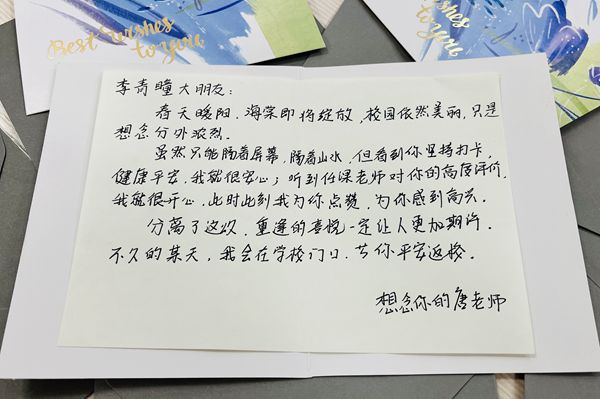 Best wishes
to you
wishes
to you
李青瞳大朋友：
春天暖阳，海棠即将绽放，校园依然美丽，只是
想念分外浓烈。
虽然只能隔着屏幕，隔着山水，但看到你坚持打卡，
健康平安，我就很安心；听到任课老师对你的高度评价，
我就很开心，此时此刻我为你点赞，为你感到高兴。
分离了这么久，重逢的喜悦一定让人更加期许。
不久的某天，我会在学校门口，等你平安返校。
想念你的唐老师